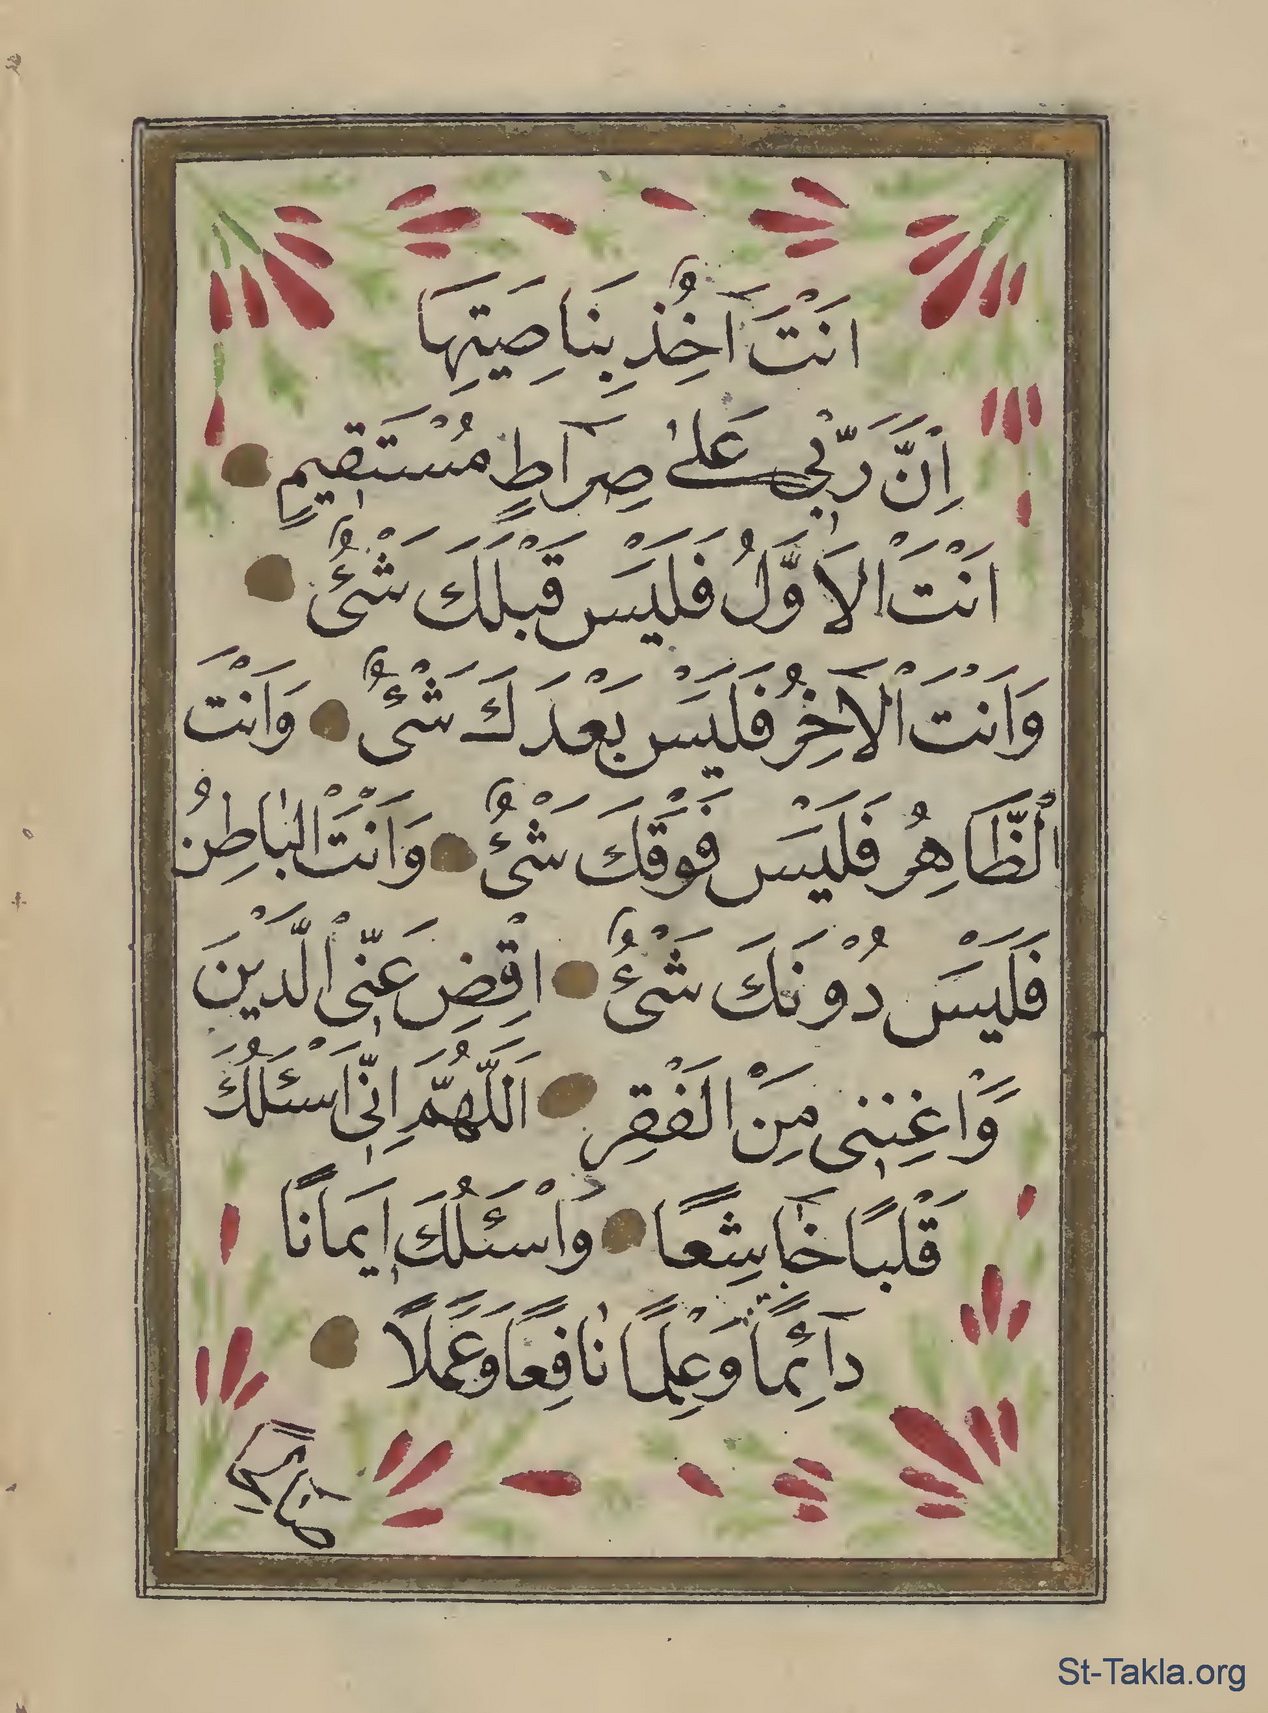 اَنْتَ اٰخِذٌ بِنَاصِيَتِهَا
اِنَّ رَبّٖي عَلٰى صِرَاطٍ مُسْتَقٖيمٍ
اَنْتَ الْاَوَّلُ فَلَيْسَ قَبْلَكَ شَيْءٌ
وَاَنْتَ الْاٰخِرُ فَلَيْسَ بَعْدَكَ شَيْءٌ وَاَنْتَ
الْظَّاهِرُ فَلَيْسَ فَوْقَكَ شَيْءٌ وَاَنْتَ الْبَاطِنُ
فَلَيْسَ دُوْنَكَ شَيْءٌ اِقْضِ عَنِّى الْدَّيْنَ
وَاَغْنِنٖى مِنَ الْفَقْرِ اَللّٰهُمَّ اِنّٖى اَسْئَلُكَ
قَلْبًا خَاشِعًا وَاَسْئَلُكَ اٖيمَانًا
دَآئِمًا وَعِلْمًا نَافِعًا وَعَمَلًا
صَالِحًا
St-Takla.org